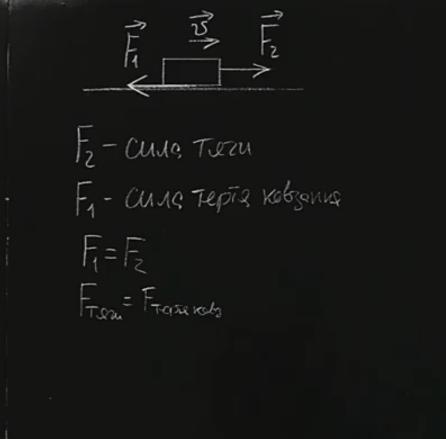 F₁ v F₂
F₂ - сила тяги
F₁ - сила тертя ковзання
F₁ = F₂
Fтяги = Fтертя ковз